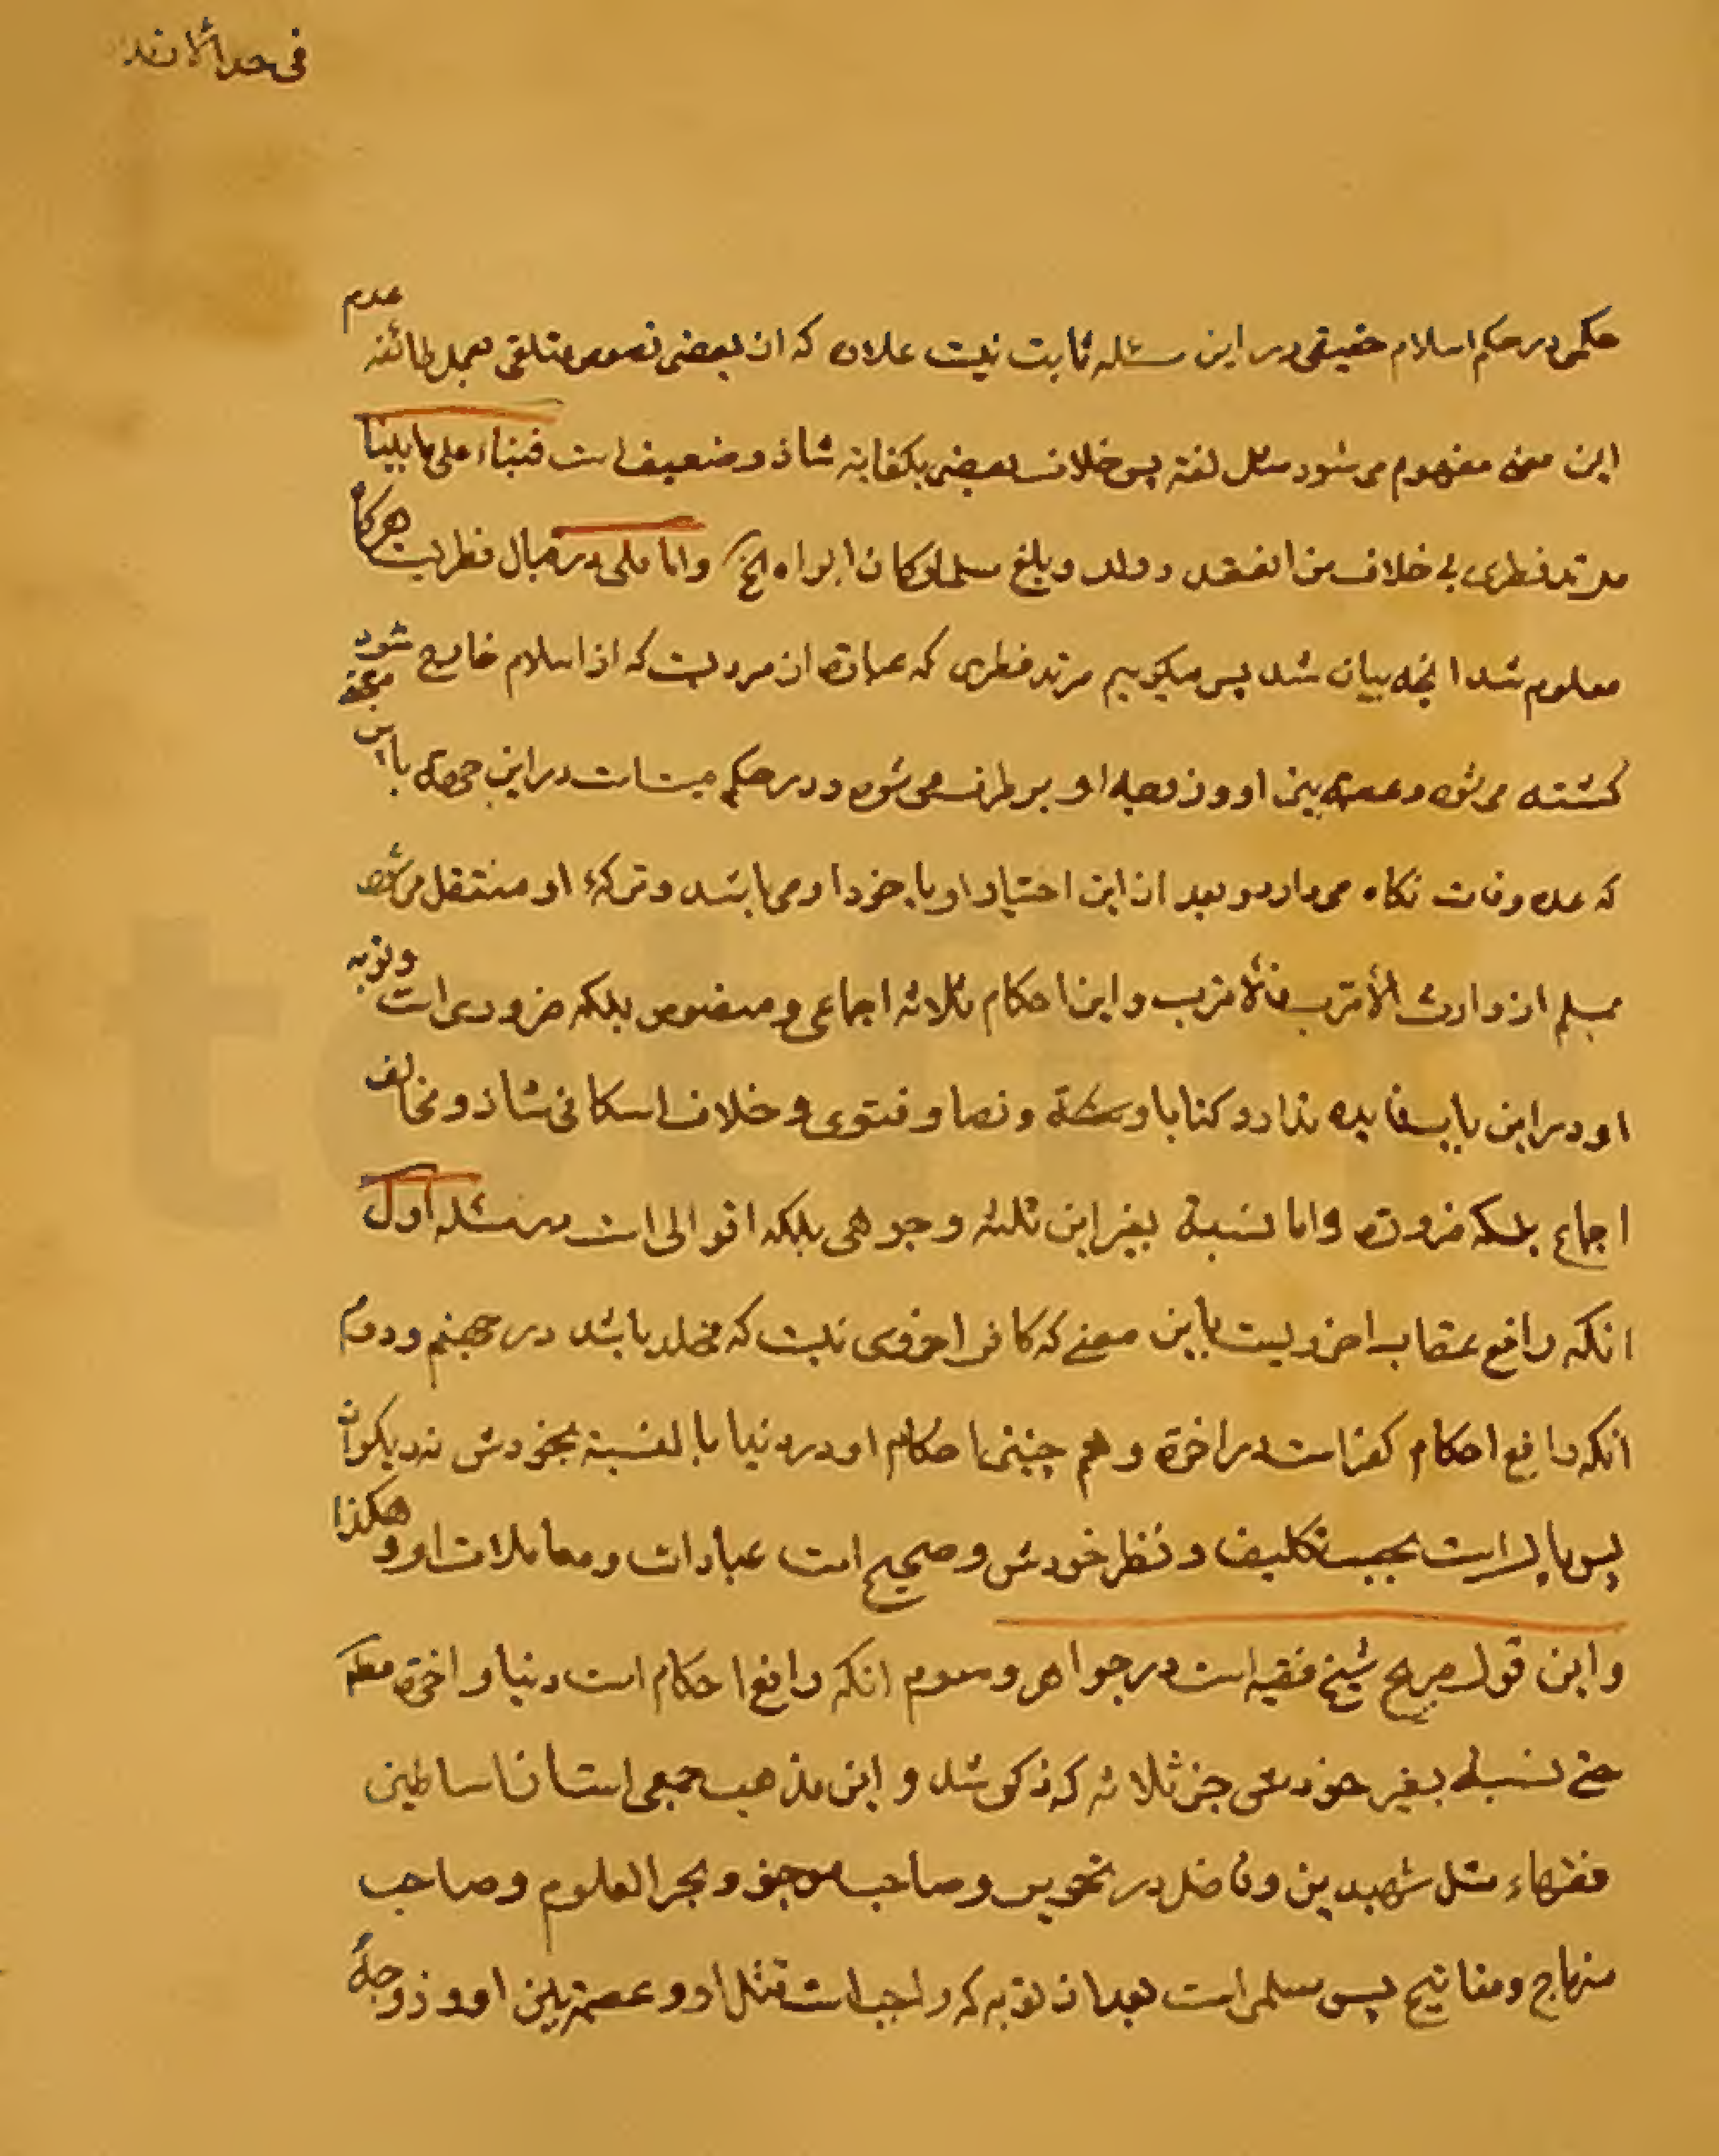 فی حد الارتداد
حکمی در حکم اسلام حقیقی در این مسئله ثابت نیست علاوه که از بعضی نصوص متلقی بعمل طائفه عدم
این معنی مفهوم می شود مثل لغة پس خلاف بعضی بکفایة شاذ و ضعیف است فبناء علی ما بیناه
مرتد فطری بی خلاف من انعقد و ولد و بلغ مسلما و کان ابواه الخ و اما ملی در قبال فطریست هرگاه
معلوم شد انچه بیان شد پس میگوییم مرتد فطری که عبارة از مردیست که از اسلام خارج شود
کشته می شود و عصمة بین او و زوجه او بر طرف می شود و در حکم میت است در این جهة باین
که عده وفات نگاه می دارد و بعد از این اختیار او با خود او می باشد و ترکهٔ او منتقل می شود
بمسلم از وارث الأقرب فالأقرب و این احکام ثلاثه اجماعی و منصوص بلکه ضروری است و توبه
او در این باب فایده ندارد کتابا و سنة و نصا و فتوی و خلاف اسکافی شاذ و مخالف
اجماع بلکه ضرورة و اما نسبة بغیر این ثلثه وجوهی بلکه اقوالی است در مسئله اول
انکه رافع عقاب اخرویست باین معنی که کافر اخروی نیست که مخلد باشد در جهنم و دوم
انکه رافع احکام کفر است در اخرة و هم چنین احکام او در دنیا بالنسبة بخودش نه دیگران
پس پاک است بحسب تکلیف و نظر خودش و صحیح است عبادات و معاملات او و هکذا
و این قول صریح شیخ فقیه است در جواهر و سوم انکه رافع احکام است دنیا و اخرة مطلقا
حتی نسبة بغیر خودش جز ثلاثه که ذکر شد و این مذهب جمعی است از اساطین
فقهاء مثل شهیدین و فاضل در تحریر و صاحب موجز و بحر العلوم و صاحب
منهاج و مفاتیح پس مسلم است بعد از توبه که واجب است قتل او و عصمة بین او و زوجهٔ